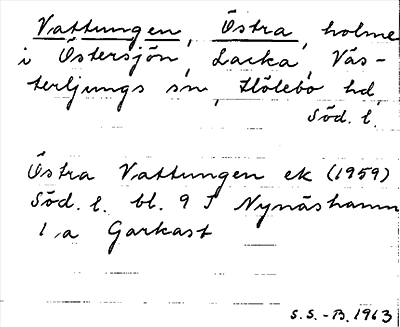 Vattungen, Östra, holme
i Östersjön, Lacka, Väs-
terljungs sn, Hölebo hd,
Söd. l.
Östra Vattungen ek (1959)
Söd. l. bl. 9 I Nynäshamn
1 a Garkast
S.S.-B. 1963